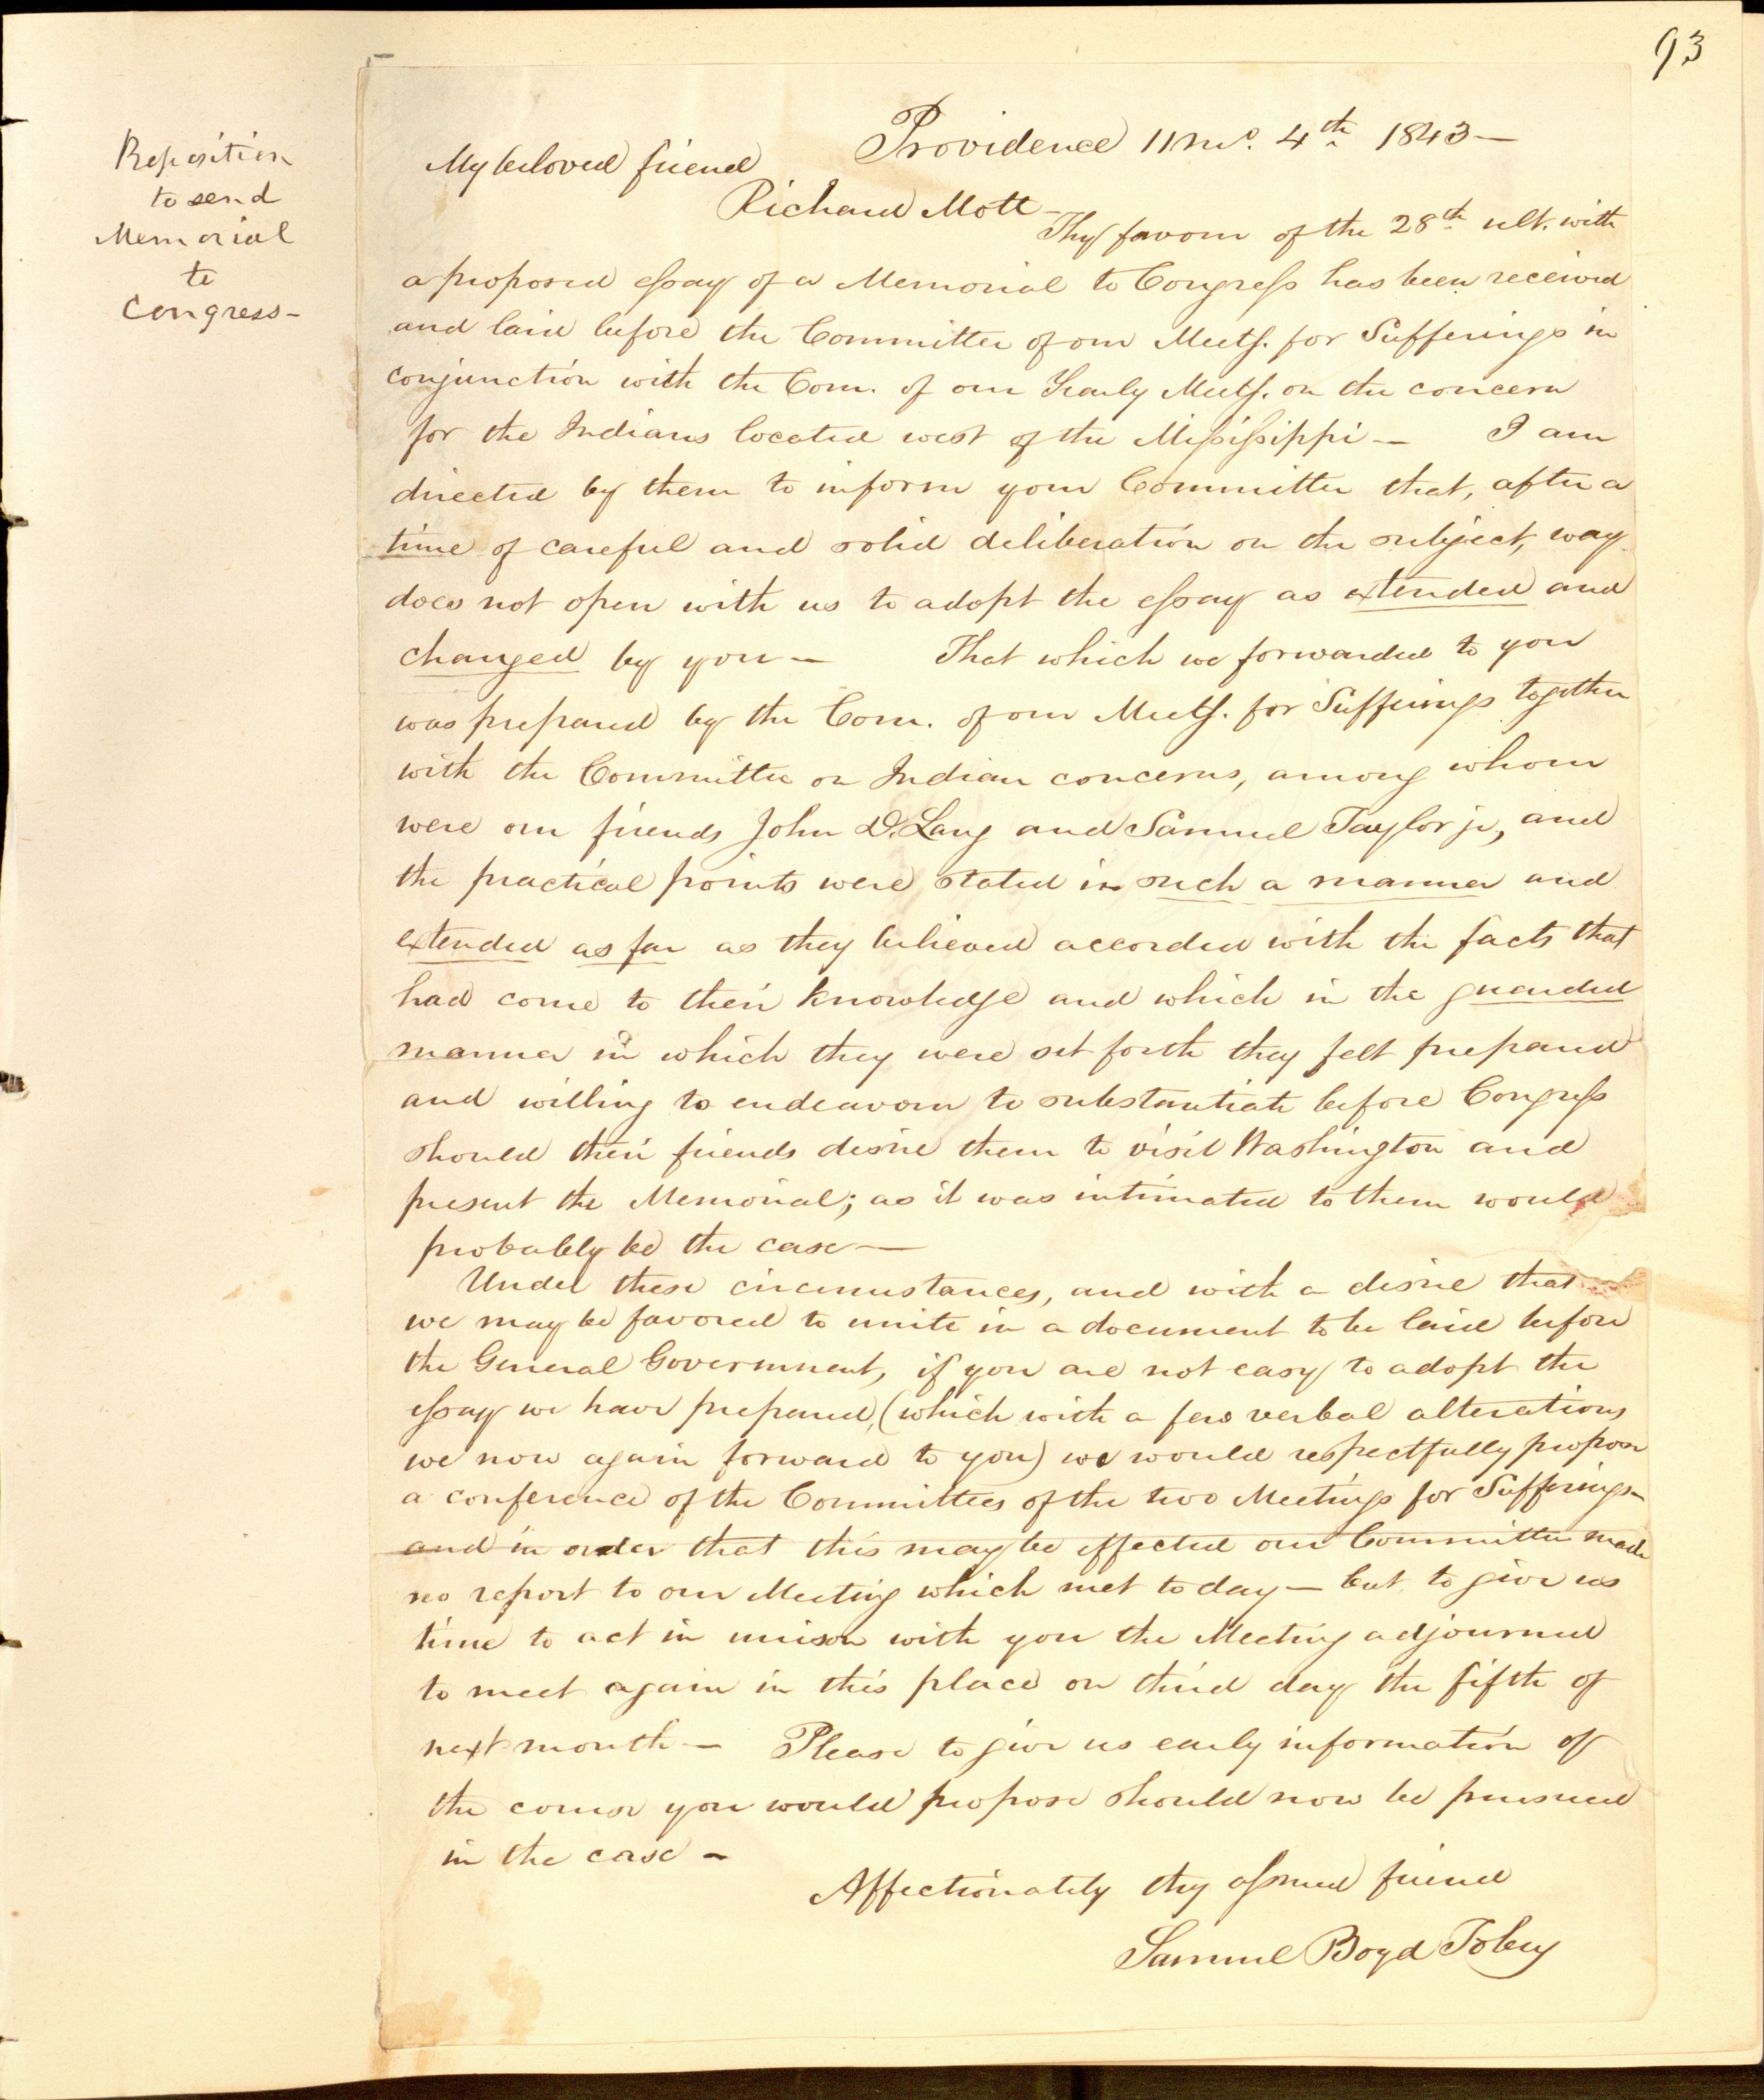 93
Reposition
to send
Memorial
to
Congress-
Providence 11 mo. 4th 1843—
My beloved friend
Richard Mott—
Thy favour of the 28th ult. with
a proposed essay of a Memorial to Congress has been received
and laid before the Committee of our Meetg. for Sufferings in
conjunction with the Com. of our Yearly Meetg. on the concern
for the Indians located west of the Mississippi — I am
directed by them to inform your Committee that, after a
time of careful and solid deliberation on the subject, way
does not open with us to adopt the essay as extended and
changed by you — That which we forwarded to you
was prepared by the Com. of our Meetg. for Sufferings together
with the Committee on Indian concerns, among whom
were our friends John D. Lang and Samuel Taylor jr., and
the practical points were stated in such a manner and
extended as far as they believed accorded with the facts that
had come to their knowledge and which in the guarded
manner in which they were set forth they felt prepared
and willing to endeavour to substantiate before Congress
should their friends desire them to visit Washington and
present the Memorial; as it was intimated to them would
probably be the case —
Under these circumstances, and with a desire that
we may be favored to unite in a document to be laid before
the General Government, if you are not easy to adopt the
essay we have prepared, (which with a few verbal alterations
we now again forward to you) we would respectfully propose
a conference of the Committees of the two Meetings for Sufferings—
and in order that this may be effected our Committee made
no report to our Meeting which met to day — but to give us
time to act in unison with you the Meeting adjourned
to meet again in this place on third day the fifth of
next month — Please to give us early information of
the course you would propose should now be pursued
in the case —
Affectionately thy assured friend
Samuel Boyd Tobey